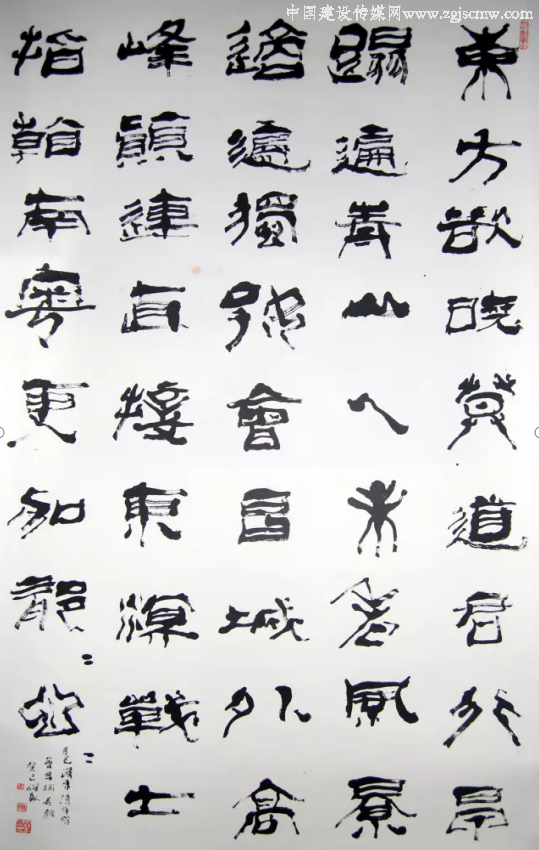 中国建设传媒网www.zgjscmw.com
東方欲曉莫道君行早
蹋遍青山人未老風景
這邊獨好會昌城外高
峰顛連直接東溟戰士
指看南粵更加郁〻葱〻
癸巳